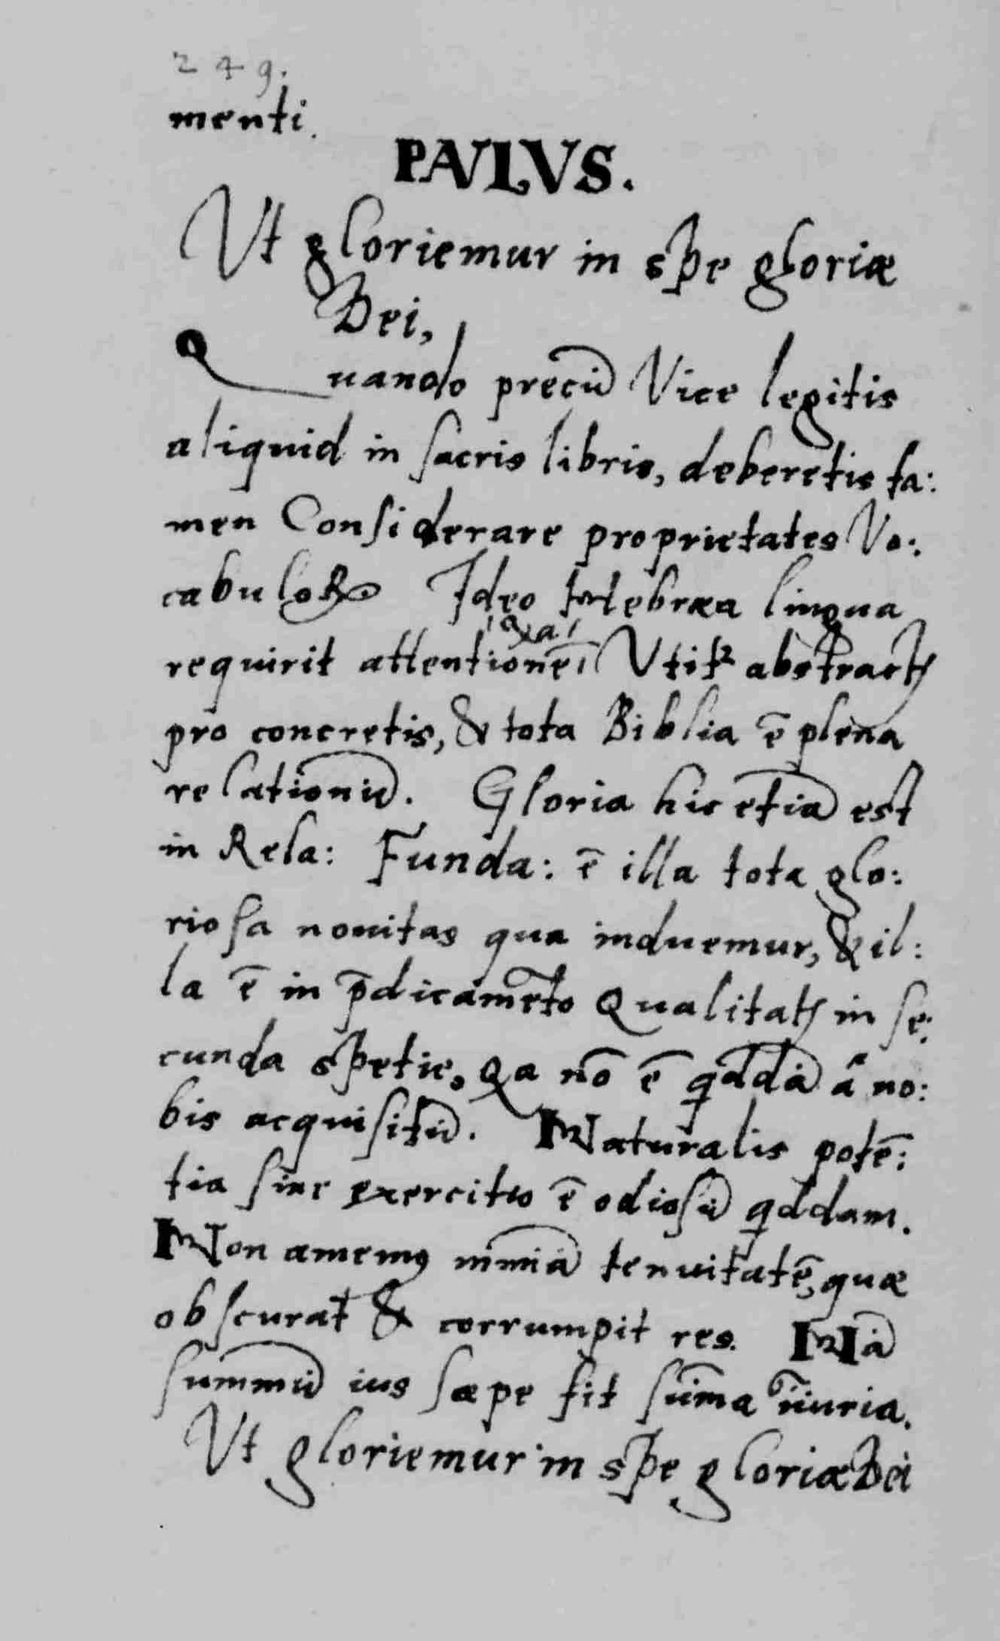 249.
menti.
PAVLVS.
Vt gloriemur in spe gloriæ
Dei,
Quando precũ Vice legitis
aliquid in sacris libris, deberetis ta:
men Considerare proprietates Vo:
cabuloꝝ Ideo Hebræa lingua
requirit attentionē Vtitᷣ abstractꝭ
pro concretis, & tota Biblia ē plena
relationũ. Gloria hic etiã est
in Rela: Funda: ē illa tota glo:
riosa nouitas qua induemur, & il:
la ē in p̄dicamēto Qualitatꝭ in se:
cunda spetie, Qa nō ē qddã â no:
bis acquisitũ. Naturalis potē:
tia sine exercitio ē odiosũ qddam.
Non amemꝰ nimiã tenuitatē, quæ
obscurat & corrumpit res. Nã
summũ ius sæpe fit sum̃a iniuria.
Vt gloriemur in spe gloriæ Dei